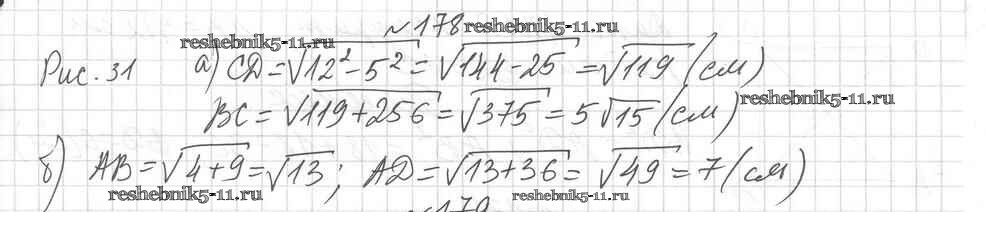 №178 reshebnik5-11.ru
reshebnik5-11.ru
Рис. 31 а) CD = √12² - 5² = √144 - 25 = √119 (см)
BC = √119 + 256 = √375 = 5√15 (см) reshebnik5-11.ru
б) AB = √4 + 9 = √13; AD = √13 + 36 = √49 = 7 (см)
reshebnik5-11.ru reshebnik5-11.ru
№179